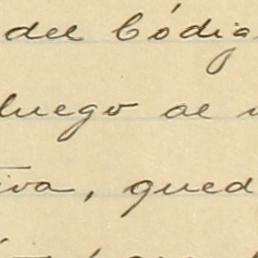 del Códig
luego al
iva, qued